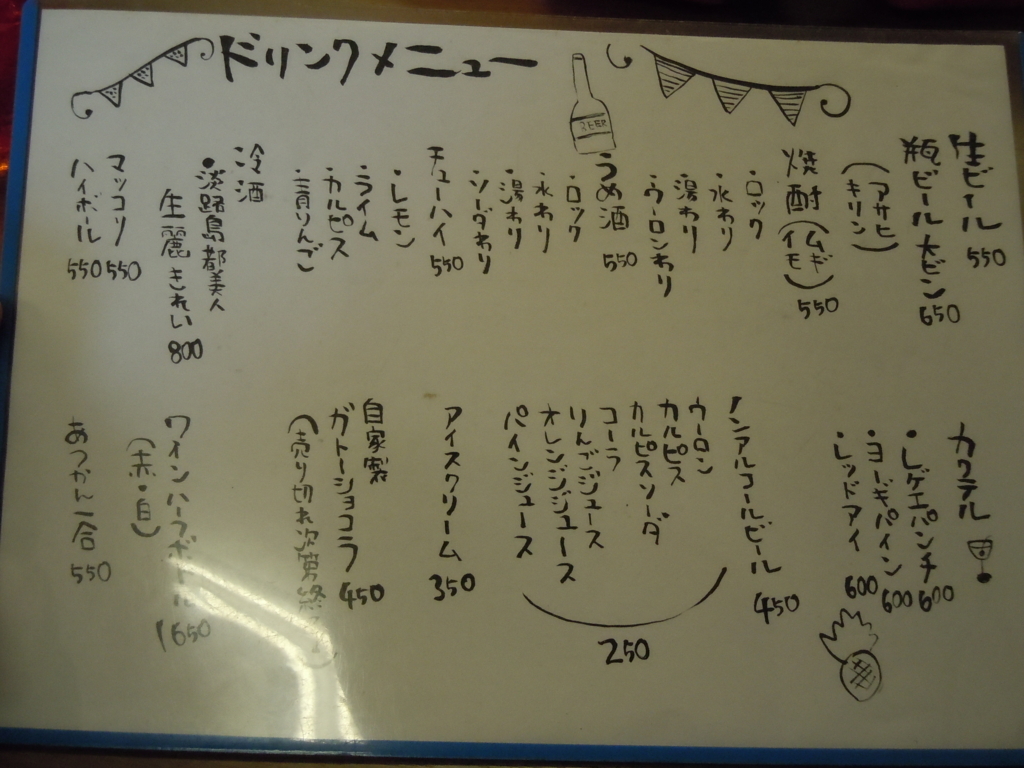 ドリンクメニュー
BEER
生ビール 550
瓶ビール大ビン 650
(アサヒ
キリン)
焼酎(ムギ
イモ) 550
・ロック
・水わり
・湯わり
・ウーロンわり
うめ酒 550
・ロック
・水わり
・湯わり
・ソーダわり
チューハイ 550
・レモン
・ライム
・カルピス
・青りんご
冷酒
・淡路島都美人
生麗きれい 800
マッコリ 550
ハイボール 550
カクテル
・レゲエパンチ 600
・ヨーギパイン 600
・レッドアイ 600
ノンアルコールビール 450
ウーロン
カルピス
カルピスソーダ
コーラ
りんごジュース
オレンジジュース
パインジュース
250
アイスクリーム 350
自家製
ガトーショコラ 450
(売り切れ次第終了)
ワインハーフボトル 1650
(赤・白)
あつかん一合 550